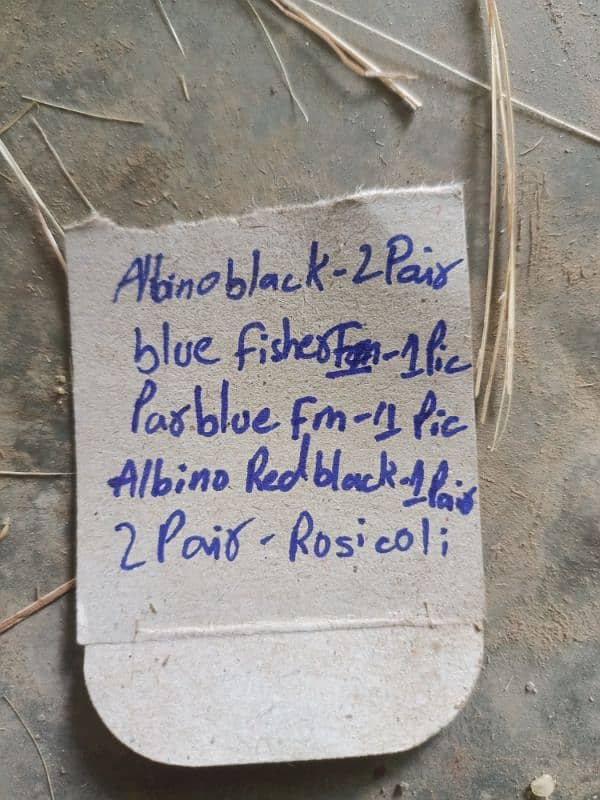 Albino black - 2 Pair
blue fisher Fm - 1 Pic
Parblue Fm - 1 Pic
Albino Red black - 1 Pair
2 Pair - Rosicoli